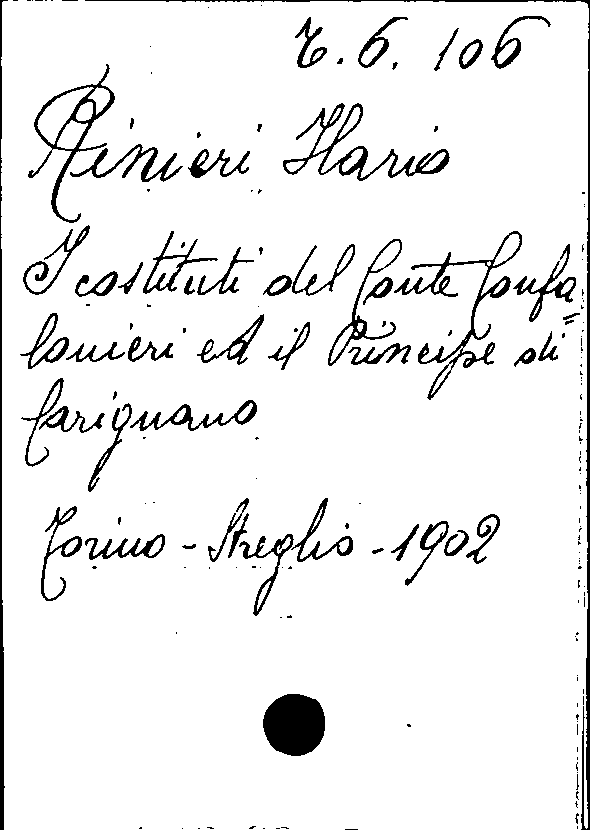 7.6.106
Rinieri Ilario
I costituti del Conte Confa=
lonieri ed il Principe di
Carignano
Torino - Streglio - 1902